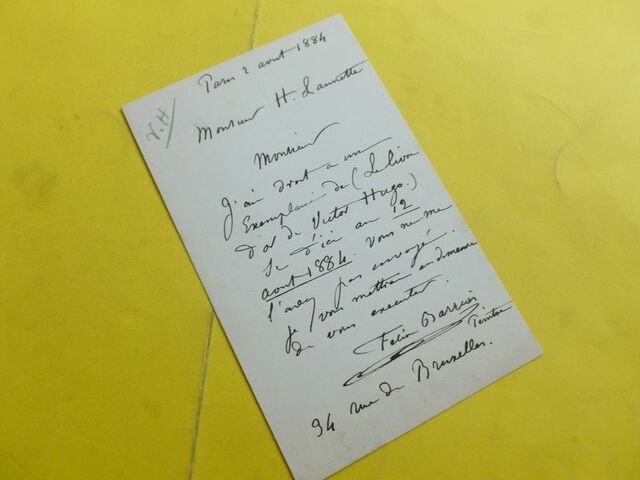 V.H
Paris 2 aout 1884
Monsieur H. Launette
Monsieur
J'ai droit a un
Exemplaire de (Le Livre
d'or de Victor Hugo.)
Si d'ici au 12
aout 1884. vous ne me
l'avez pas envoyé.
Je vous mettrai en demeure
de vous executer.
Felix Barrias
Peintre
34 rue de Bruxelles.